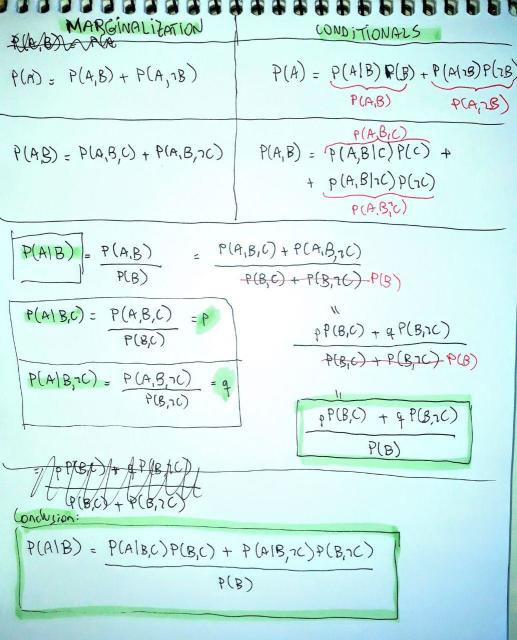 MARGINALIZATION
CONDITIONALS
P(A) = P(A,B) + P(A,¬B)
P(A) = P(A|B) P(B) + P(A|¬B)P(¬B)
P(A,B)
P(A,¬B)
P(A,B) = P(A,B,C) + P(A,B,¬C)
P(A,B,C)
P(A,B) = P(A,B|C)P(C) +
+ P(A,B|¬C)P(¬C)
P(A,B,¬C)
P(A|B) = P(A,B) / P(B) = P(A,B,C) + P(A,B,¬C) / P(B,C) + P(B,¬C) P(B)
P(A|B,C) = P(A,B,C) / P(B,C) = p
"
pP(B,C) + qP(B,¬C) / P(B,C) + P(B,¬C) P(B)
P(A|B,¬C) = P(A,B,¬C) / P(B,¬C) = q
"
pP(B,C) + qP(B,¬C) / P(B)
= pP(B,C) + qP(B,¬C) / P(B,C) + P(B,¬C)
Conclusion:
P(A|B) = P(A|B,C)P(B,C) + P(A|B,¬C)P(B,¬C) / P(B)